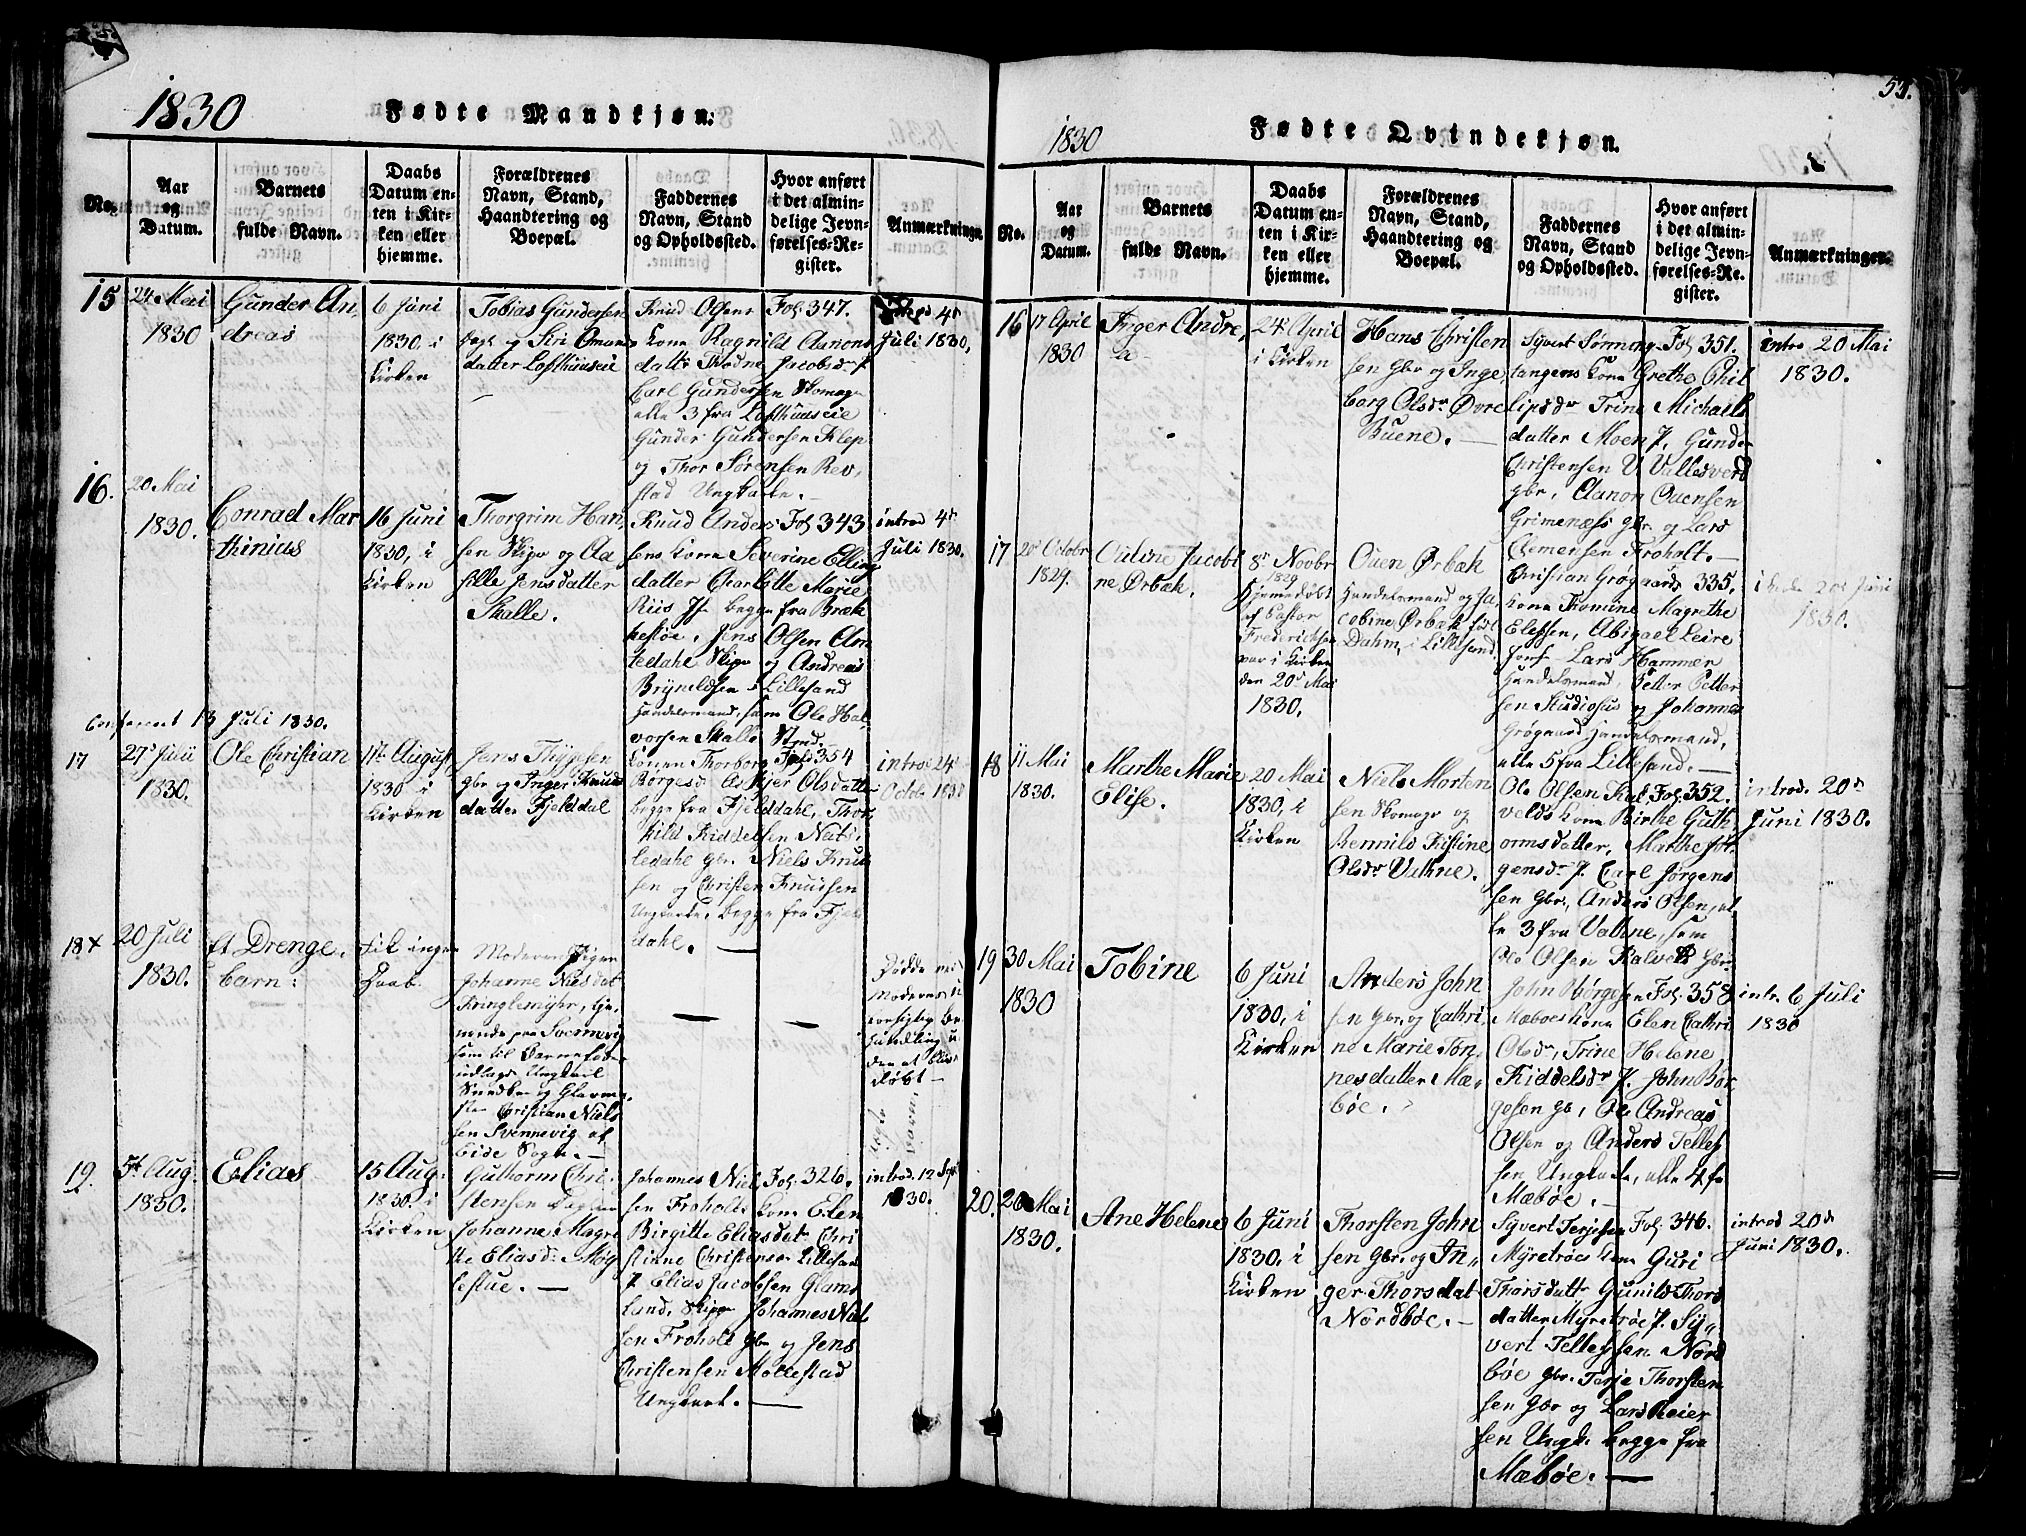 1830
Fødte Mandkjøn.
No.
Aar og Datum.
Barnets fulde Navn.
Daabs Datum enten i Kirken eller hjemme.
Forældrenes Navn, Stand, Haandtering og Boepæl.
Faddernes Navn, Stand og Opholdssted.
Hvor anført i det almindelige Jevnførelses-Register.
Anmærkninger.
15
24 Mai
1830
Gunder An
dreas
6 Juni
1830. i
Kirken
Tobias Gundersen
og Siri Omunds
datter Lofthuuseie
Knud Olsens
Kone Ragnild Aanons
datt: Thodne Jacobsd. P.
Carl Gundersen Skomager
alle 3 fra Lofthuuseie
Gunder Gundersen Klep
og Thor Sørensen Rev,
stad Ungkarle. -
Fol. 347.
4de
Juli 1830,
16.
20 Mai
1830.
Conrad Mar
thinius
16 Juni
1830, i
Kirken
Thorgrim Han,
sen Skipr og Aa
sille Jensdatter
Skalle.
Knud Anders
sens Kone Severine Elling
datter Charlotte Marie
Riis Jf. begge fra Bræk
kestøe, Jens Olsen Am
teedahl Skipr og Andreas
Brynildsen i Lillesand
Handelsmand, samt Ole Hal
vorsen Skalle
Fol. 343
introd 4de
Juli 1830.
Conferent 13 Juli 1830.
17
27 Juli
1830.
Ole Christian
11te August
1830 i
Kirken
Jens Thygesen
gbr og Inger Knuds
datter Fjeldal
Konen Thorborg
Børgesd. Asbjer Olsdatter
begge fra Fjelddahl, Thor
kild Kiddelsen Nats
ledahl gbr. Niels Knud
sen og Christen Knudsen
Ungkarle, begge fra Fjel
dahl. —
Fol. 354
introd 24
Octobr 1830
18 x
20 Juli
1830.
Et Drenge.
barn:
Fik ingen
Daab.
Moderen Pigen
Johanne Nielsdat
Kringlemyhr, tje,
nende paa Svennevig
som til Barnefader
udlagde Ungkarl
Snedker og Glarme,
ster Christian Niels
sen Svennevig af
Eide Sogn. -
—
—
Døde ved
Moderens u
forsigtige Be
handling u
den at blive
døbt -
19.
5te Aug.
1830.
Elias
15 Aug.
1830. i
Kirken
Guttorm Chri
stensen
Johanne Magre
the Eliasdr Møg
lestue. —
Johannes Niel
sen Froholts Kone Elen
Birgitte Eliasdatr Chri
stinne Christensen Lillesand
P. Elias Jacobsen Glams
land, Skipr Johannes Niel
sen Froholt Gbr og Jens
Christensen Møllestad
Ungkarl. —
Fol. 326.
introd. 12 Sept
1830.
55.
1830
Fødte Qvindekjøn.
No.
Aar og Datum.
Barnets fulde Navn.
Daabs Datum enten i Kirken eller hjemme.
Forældrenes Navn, Stand, Haandtering og Boepæl.
Faddernes Navn, Stand og Opholdssted.
Hvor anført i det almindelige Jevnførelses-Register.
Anmærkninger.
16
17 April
1830
Inger Andre,
a -
24 April
i Kirken
Hans Christen
sen Gbr og Inge,
borg Olsdr Øvre
Buene. —
Syvert Sørnning,
tangens Kone Grethe Phil
lipsdr Trine Michaels
datter Moen P. Gunder
Christensen V Vallesverd
gbr, Aanon Ouensen
Grimenæss gbr og Lars
Clemensen Froholt. —
Fol. 351.
intro 20 Mai
1830.
17
20 Octobr
1829.
Ouline Jacobi
ne Ørbæk.
8de Novbr
1829
Hjemmedøbt
af Pastor
Frederichsen
var i Kirken
den 20de Mai
1830.
Ouen Ørbæk
Handelsmand og Ja,
cobine Ørbæk født
Dahm, i Lillesand.
Christian Grøgaards
Kone Thomine Magrethe
Elessen, Abigael Leire
Jomf. Lars Hammer
Handelsmand Petter Petter
sen Studiosus og Johannes
Grøgaard Handelsmand,
alle 5 fra Lillesand. —
335.
20de Juni
1830.
18
11 Mai
1830.
Marthe Marie
Elise.
20 Mai
1830, i
Kirken
Niels Morten
sen Skomagr og
Rennild Kistine
Olsdr Vathne.
Ole Olsen Kal,
velds Kone Birthe Guth
ormsdatter, Marthe Jør
gensdr P. Carl Jørgens
sen Gbr, Anders Olsen, al
le 3 fra Vathne, sam
Ole Olsen Kalveld Gbr
Fol. 352.
introd. 20de
Juni 1830.
19
30 Mai
1830
Tobine
6 Juni
1830, i
Kirken
Anders John
sen Gbr, og Cathri
ne Marie Tøn,
nesdatter Mæ,
bøe.
John Børgesen
Mæboes Kone Elen Cathri
Olsdr, Trine Helene
Kiddelsdr P. John Bør
gesen gb, Ole Andreas
Olsen og Anders Tellef
sen Ungkarle, alle 4 fra
Mæbøe. -
Fol. 358
intr. 6 Juli
1830
20.
26 Mai
1830.
Ane Helene
6 Juni
1830, i
Kirken
Thorsten John
sen Gbr, og In,
ger Thorsdat
Nordbøe. -
Syvert Terjesen
Myretrøes Kone Guri
Thorsdattr Gunild Thors
datter Myretrøe P. Sy,
vert Tellefsen Nord
bøe Gbr. Terje Thorsten
sen Gbr og Lars Reier
sen Ungk. begge fra
Mæbøe. —
Fol. 346.
introd 20de
Juni 1830.